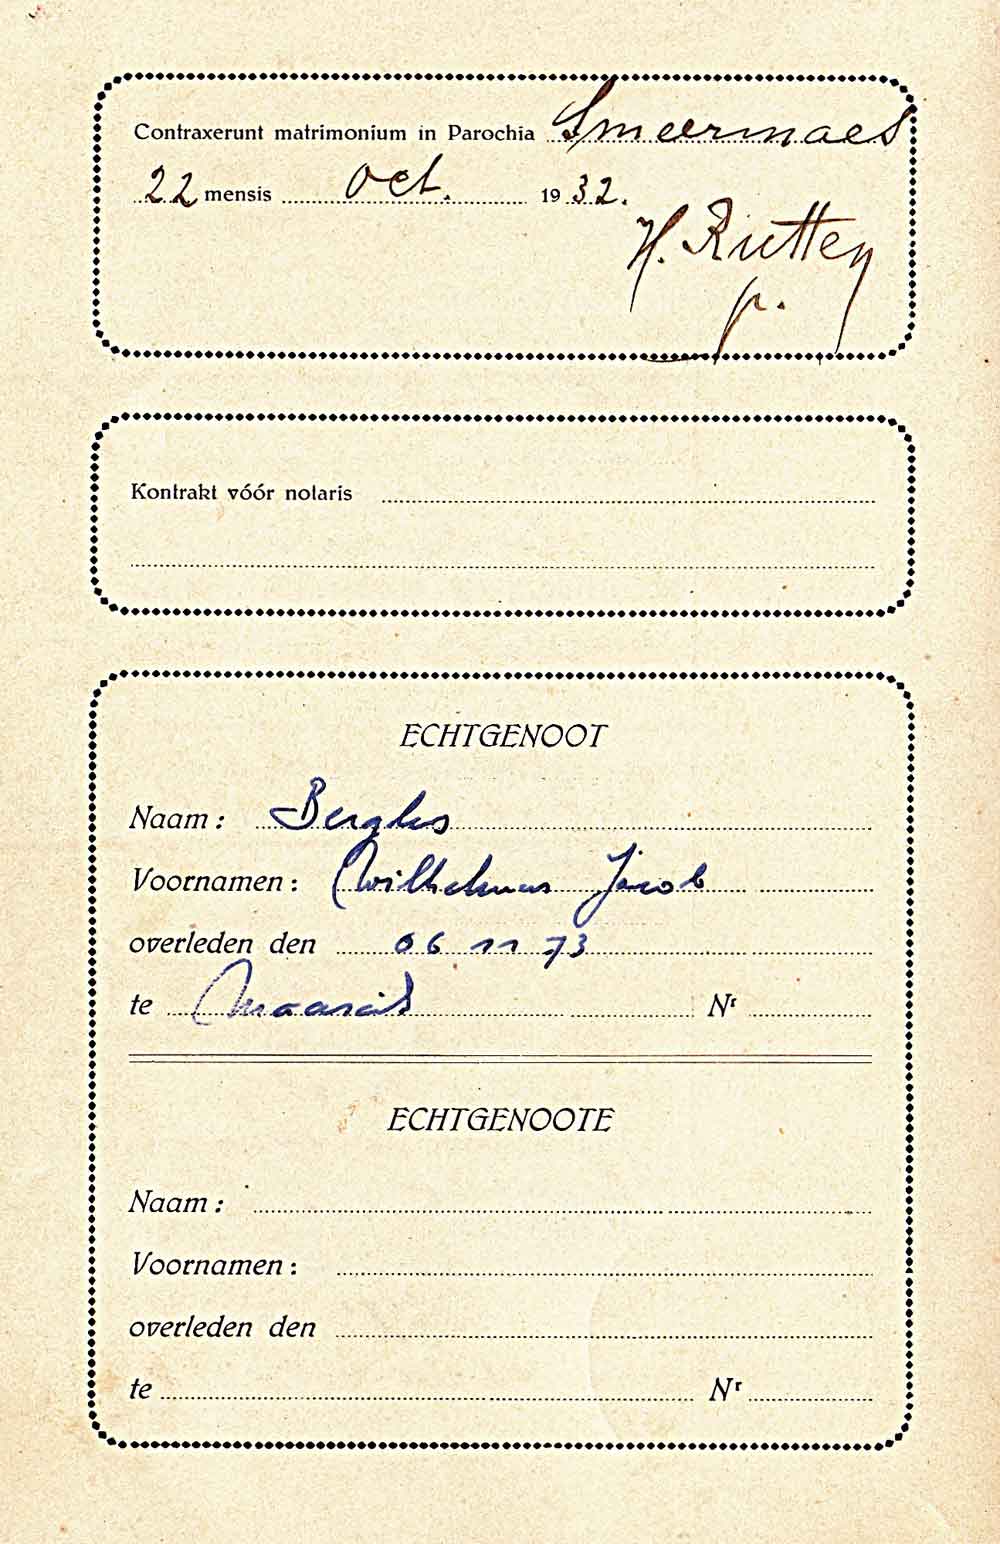 Contraxerunt matrimonium in Parochia Smeermaes
22 mensis oct. 1932.
H. Rutten
p.
Kontrakt vóór nolaris
ECHTGENOOT
Naam: Berghs
Voornamen: Wilhelmus Jacob
overleden den 06 11 73
te Nr
ECHTGENOOTE
Naam:
Voornamen:
overleden den
te Nr